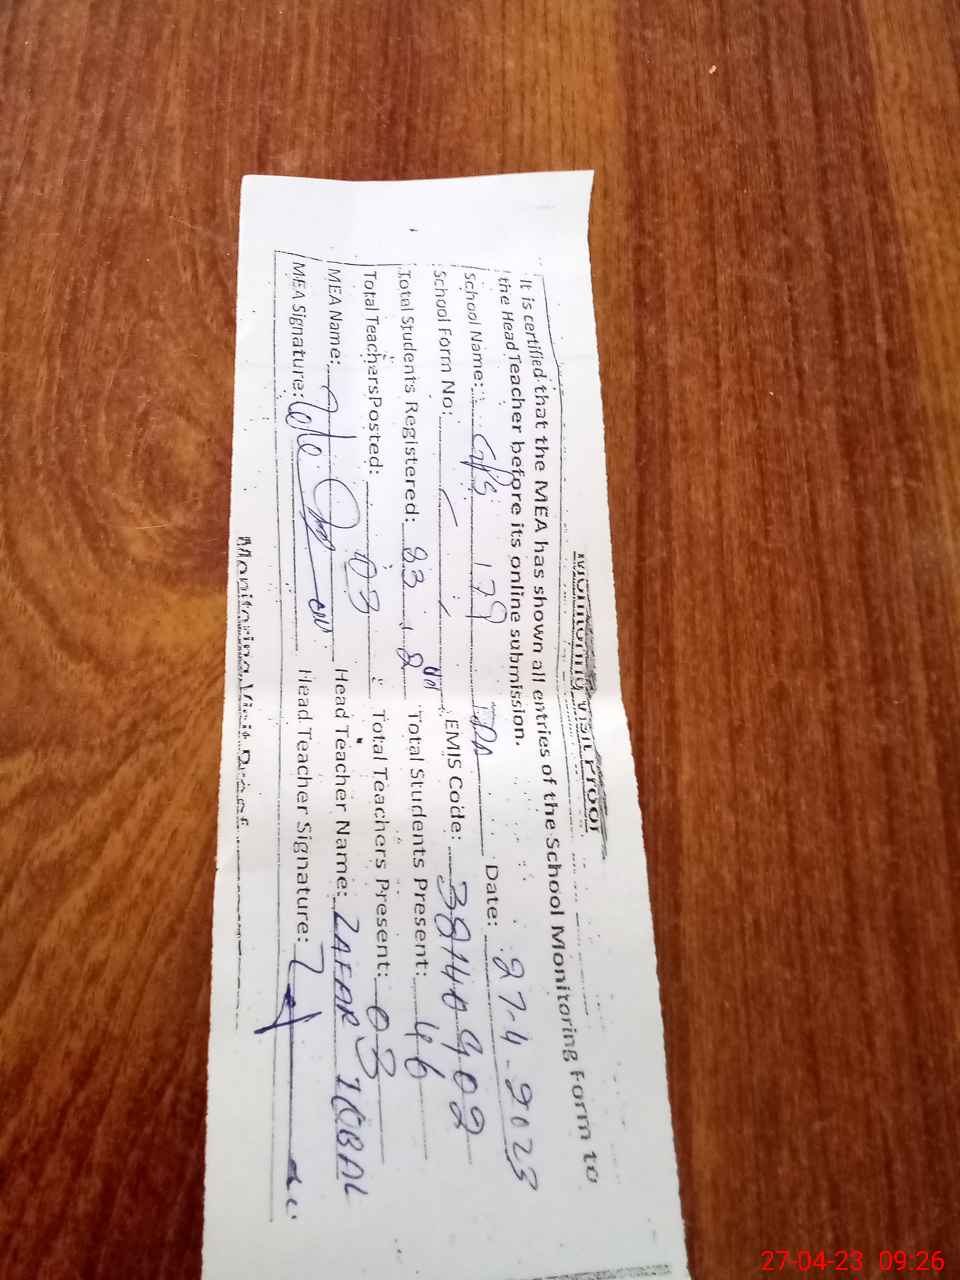 Monitoring Visit Proof
It is certified that the MEA has shown all entries of the School Monitoring Form to
the Head Teacher before its online submission.
School Name: GPS 179 TDA Date: 27-4-2023
School Form No: EMIS Code: 38140902
Total Students Registered: 83 Total Students Present: 46
Total Teachers Posted: 03 Total Teachers Present: 03
MEA Name: Head Teacher Name: ZAFAR IQBAL
MEA Signature: Head Teacher Signature:
Monitoring Visit Proof
27-04-23 09:26